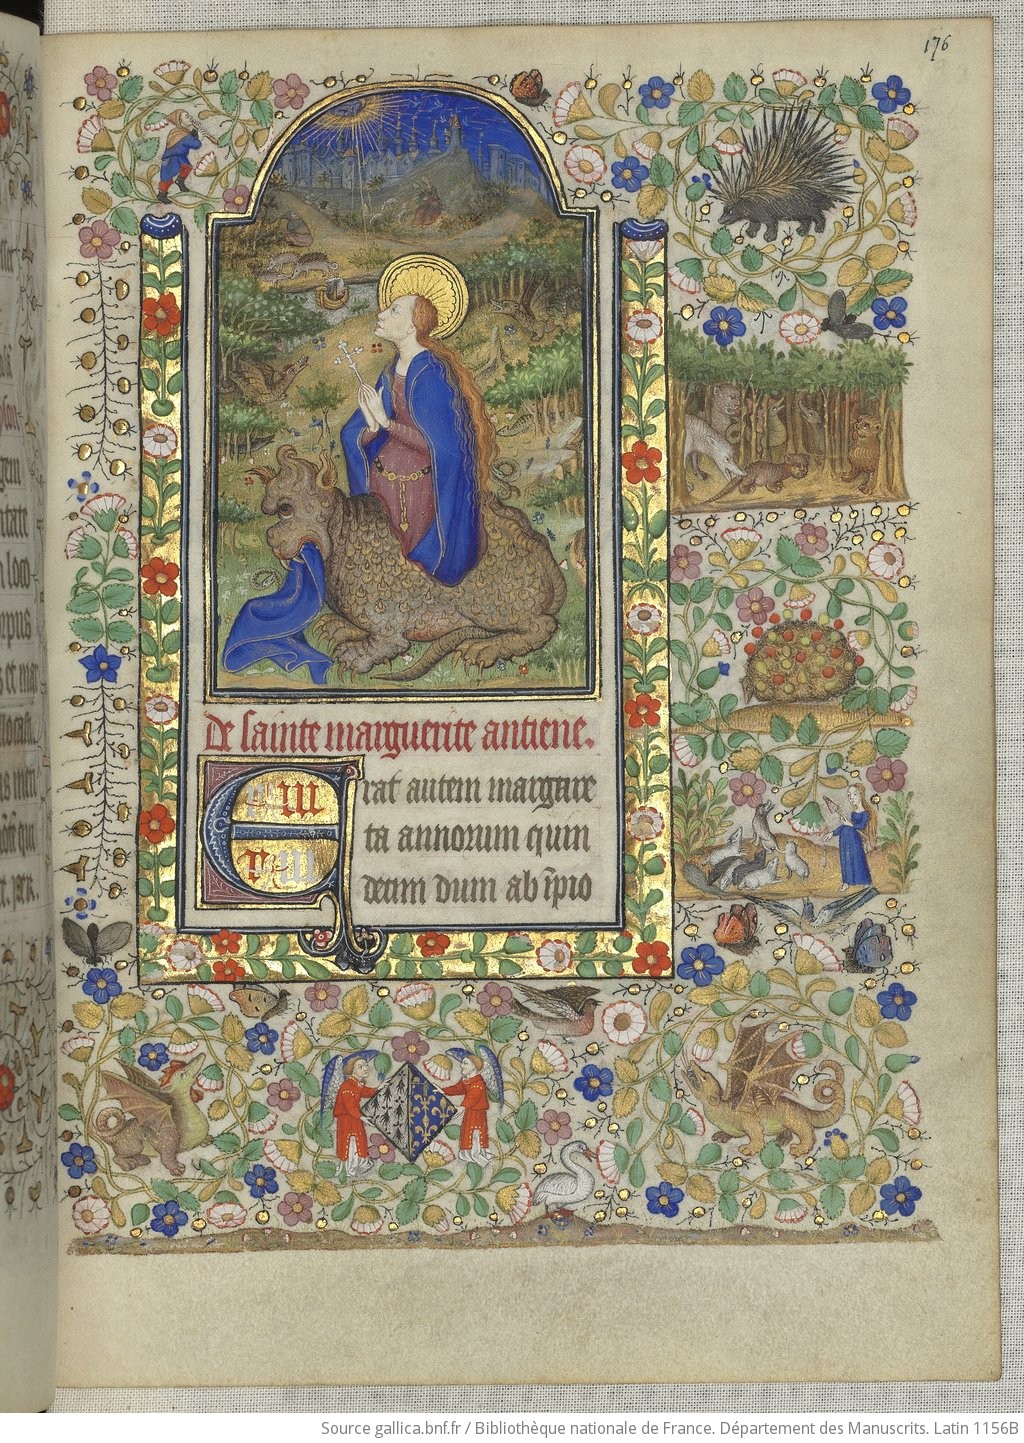 176
De sainte marguerite antiene.
Erat autem margare
ta annorum quin
decim dum ab īpio
Source gallica.bnf.fr / Bibliothèque nationale de France. Département des Manuscrits. Latin 1156B